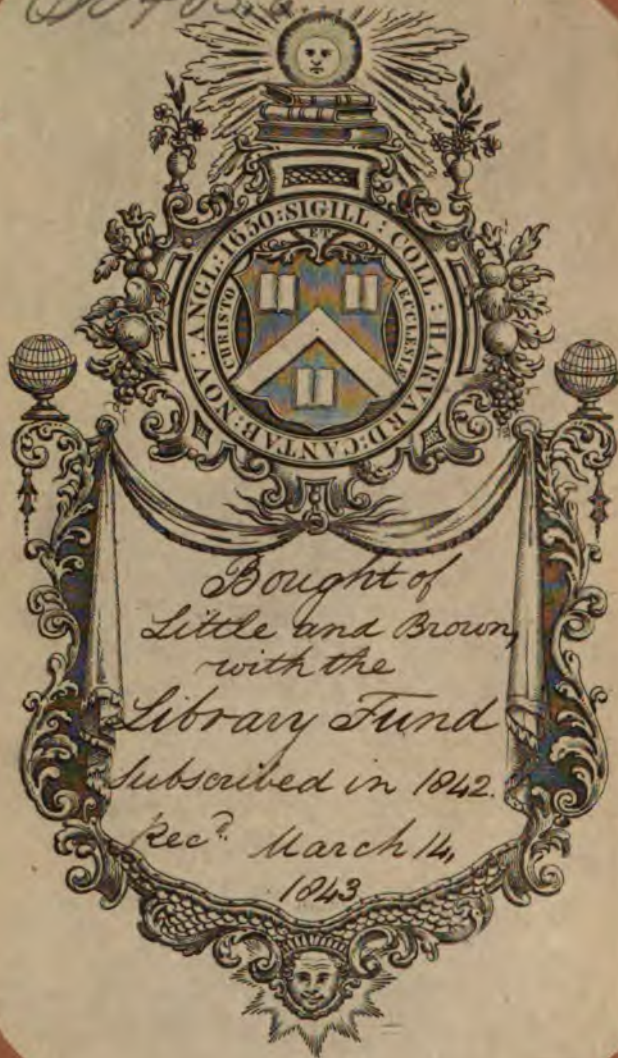 SIGILL : COLL : HARVARD : CANTAB : NOV : ANGL : 1650 :
CHRISTO ET ECCLESIÆ
Bought of
Little and Brown,
with the
Library Fund
Subscribed in 1842.
Recd. March 14,
1843.